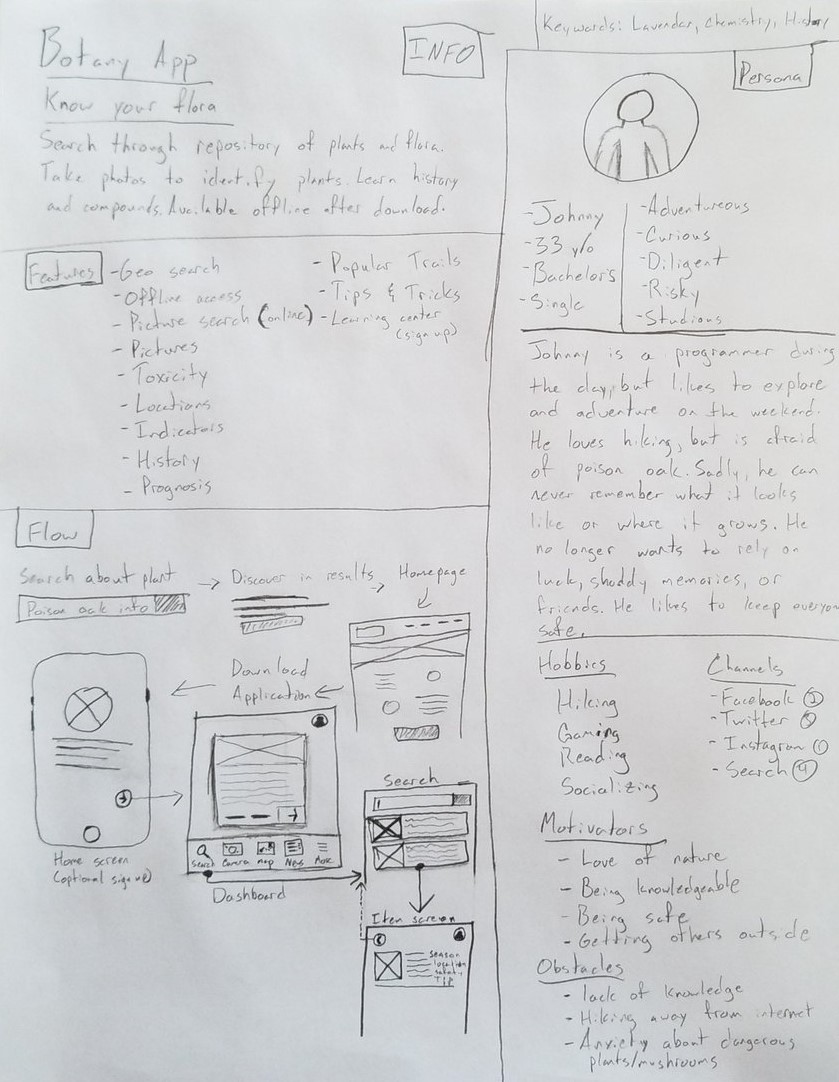 Botany App
INFO
Know your flora
Search through repository of plants and flora.
Take photos to identify plants. Learn history
and compounds. Available offline after download.
Features
- Geo search
- Offline access
- Picture search (online)
- Pictures
- Toxicity
- Locations
- Indicators
- History
- Prognosis
- Popular Trails
- Tips & Tricks
- Learning center
(sign up)
Flow
Search about plant
Poison oak info
Discover in results
Homepage
Download
Application
Home screen
(optional sign up)
Search
Camera
Map
News
More
Dashboard
Search
Item screen
Season
location
safety
TIP
Keywords: Lavendar, Chemistry, History
Persona
- Johnny
- 33 y/o
- Bachelor's
- Single
- Adventureous
- Curious
- Diligent
- Risky
- Studious
Johnny is a programmer during
the day, but likes to explore
and adventure on the weekend.
He loves hiking, but is afraid
of poison oak. Sadly, he can
never remember what it looks
like or where it grows. He
no longer wants to rely on
luck, shoddy memories, or
friends. He likes to keep everyon
safe.
Hobbies
Hiking
Gaming
Reading
Socializing
Channels
- Facebook
- Twitter
- Instagram ①
- Search ④
Motivators
- Love of nature
- Being knowledgeable
- Being safe
- Getting others outside
Obstacles
- lack of knowledge
- Hiking away from internet
- Anxiety about dangerous
plants/mushrooms